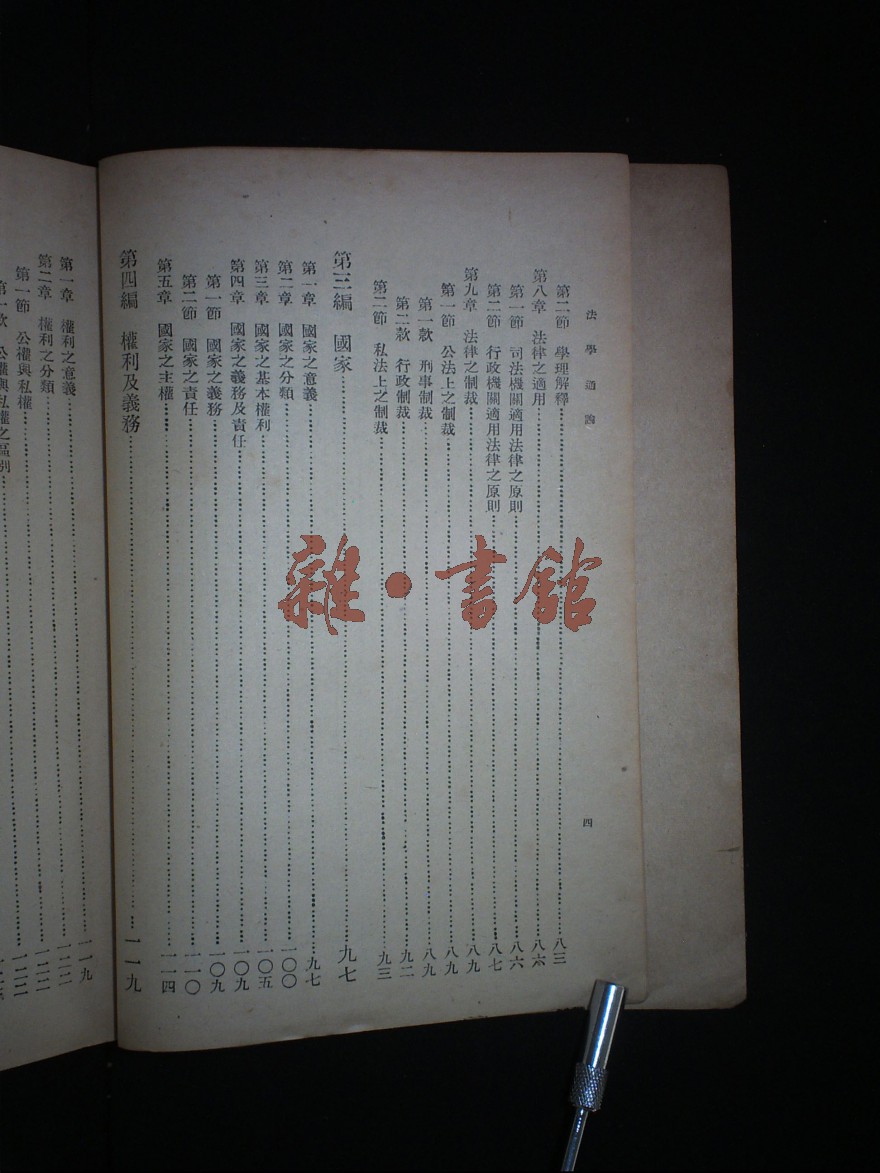 法學通論
四
第二節 學理解釋……八三
第八章 法律之適用……八六
第一節 司法機關適用法律之原則……八六
第二節 行政機關適用法律之原則……八七
第九章 法律之制裁……八九
第一節 公法上之制裁……八九
第一款 刑事制裁……八九
第二款 行政制裁……九二
第二節 私法上之制裁……九三
第三編 國家……九七
第一章 國家之意義……九七
第二章 國家之分類……一〇〇
第三章 國家之基本權利……一〇五
第四章 國家之義務及責任……一〇九
第一節 國家之義務……一〇九
第二節 國家之責任……一一〇
第五章 國家之主權……一一四
第四編 權利及義務……一一九
第一章 權利之意義……一一九
第二章 權利之分類……一二二
第一節 公權與私權……一二二
第一款 公權與私權之區別……
雜·書館